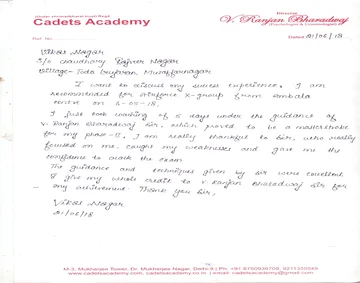 Director
Cadets Academy
V. Ranjan Bharadwaj
Ref. No.
Dated 01/06/18
Vikas Nagar
S/o Chaudhary Rajveer Nagar
Village- Toda Muzaffarnagar
I want to discuss my success experience. I am
recommended for airforce X-group from ambala
centre on 2-05-18.
I just took coaching of 5 days under the guidance of
V. Ranjan Bharadwaj Sir. which proved to be a masterstroke
for my phase-II, I am really thankful to Sir, who really
focused on me, caught my weaknesses and gave me the
confidence to crack the exam
The guidance and techniques given by sir were excellent
I give my whole credit to V. Ranjan Bharadwaj Sir for
my achievement. Thank you Sir,
Vikas Nagar
01/06/18
M-3, Mukharjee Tower, Dr. Mukherjee Nagar, Delhi-9 | Ph. +91 8750936709, 9211200585
www.cadetsacademy.com, cadetsacademy.co.in | email: cadetsacademy@gmail.com